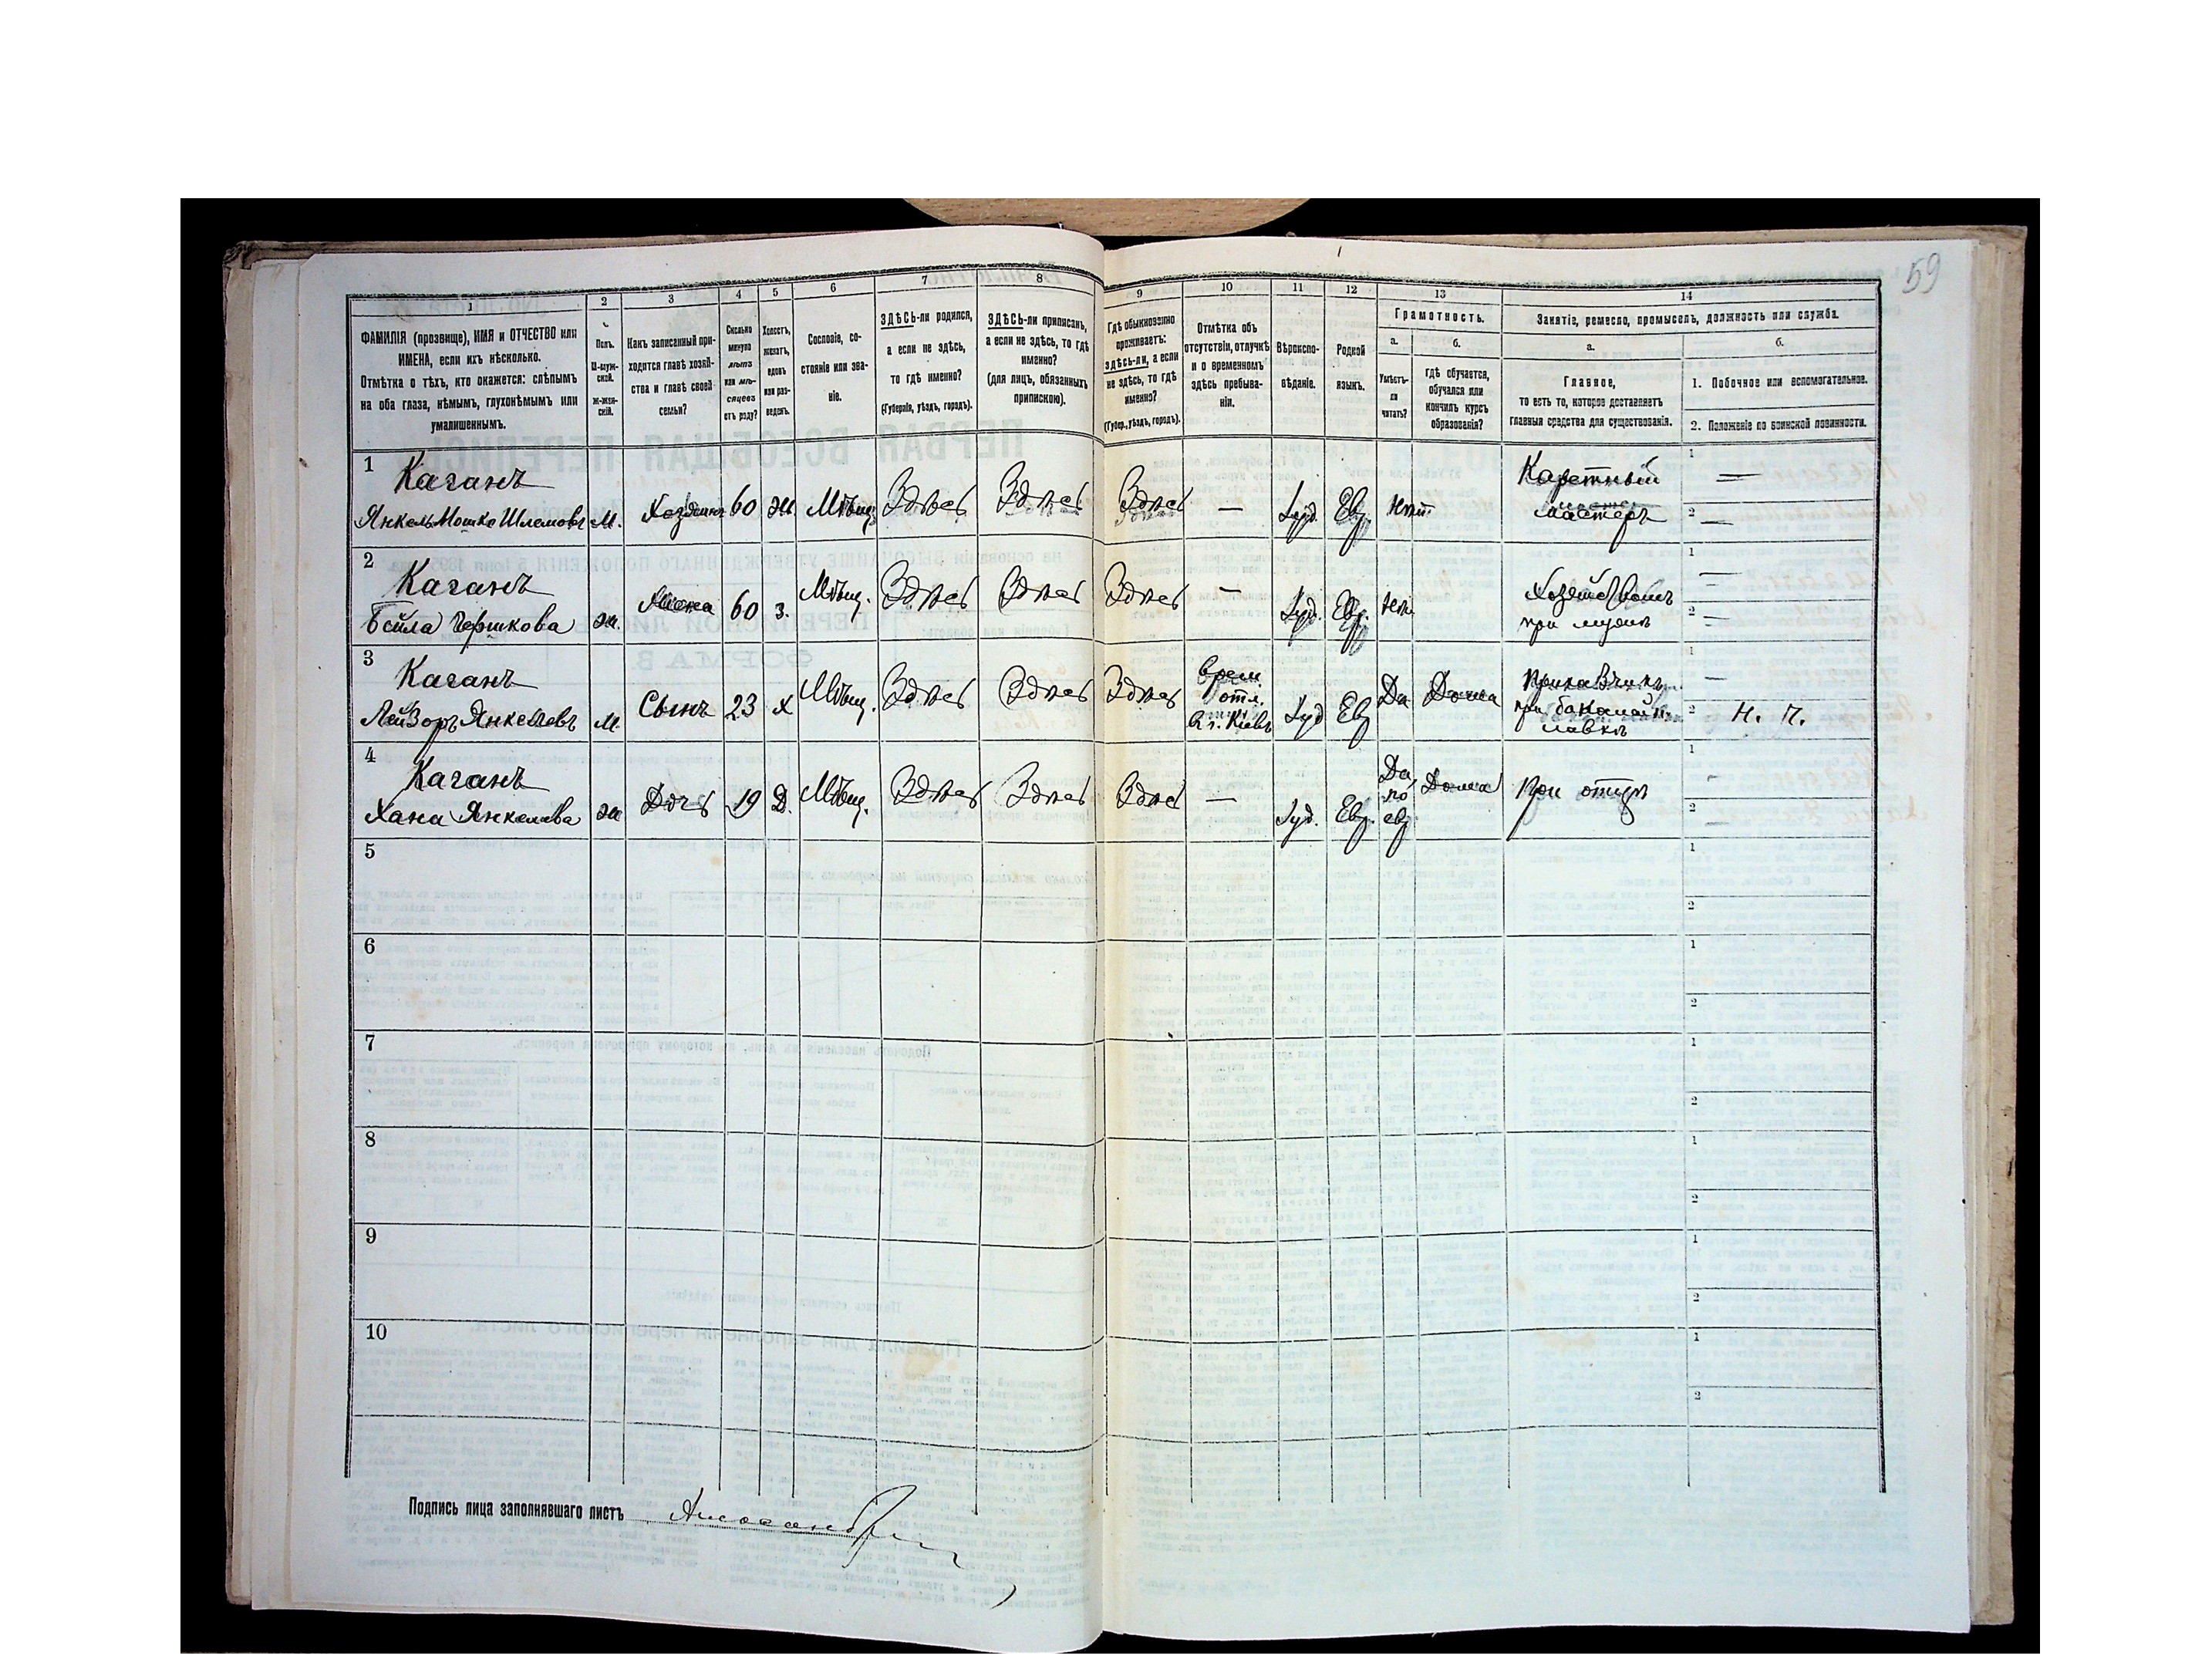 59
1 2 3 4 5 6 7 8 9 10 11 12 13 14
ФАМИЛІЯ (прозвище), ИМЯ и ОТЧЕСТВО или
ИМЕНА, если ихъ нѣсколько.
Отмѣтка о тѣхъ, кто окажется: слѣпымъ
на оба глаза, нѣмымъ, глухонѣмымъ или
умалишеннымъ.
Полъ.
М-муж-
ской.
ж-жен-
скій.
Какъ записанный при-
ходится главѣ хозяй-
ства и главѣ своей
семьи?
Сколько
минуло
лѣтъ
или мѣ-
сяцевъ
отъ роду?
Холостъ,
женатъ,
вдовъ
или раз-
веденъ.
Сословіе, со-
стояніе или зва-
ніе.
ЗДѢСЬ-ли родился,
а если не здѣсь,
то гдѣ именно?
(Губернія, уѣздъ, городъ).
ЗДѢСЬ-ли приписанъ,
а если не здѣсь, то гдѣ
именно?
(для лицъ, обязанныхъ
припискою).
Гдѣ обыкновенно
проживаетъ:
здѣсь-ли, а если
не здѣсь, то гдѣ
именно?
(Губер., уѣздъ, городъ).
Отмѣтка объ
отсутствіи, отлучкѣ
и о временномъ
здѣсь пребыва-
ніи.
Вѣроиспо-
вѣданіе.
Родной
языкъ.
Грамотность.
а.
Умѣетъ-
ли
читать?
б.
гдѣ обучается,
обучался или
кончилъ курсъ
образованія?
Занятіе, ремесло, промыселъ, должность или служба.
а.
Главное,
то есть то, которое доставляетъ
главныя средства для существованія.
б.
1. Побочное или вспомогательное.
2. Положеніе по воинской повинности.
1 Каганъ
Янкель Мошко Шлемовъ м. Хозяинъ 60 ж. Мѣщ. Здѣсь Здѣсь Здѣсь — Іуд. Евр. нѣт.
Каретный
мастеръ
1 —
2 —
2 Каганъ
Бейла Гершкова ж. Жена 60 з. Мѣщ. Здѣсь Здѣсь Здѣсь — Іуд. Евр. нѣт.
Хозяйствомъ
при мужѣ
1 —
2 —
3 Каганъ
Лейзоръ Янкелевъ м. Сынъ 23 х Мѣщ. Здѣсь Здѣсь Здѣсь
врем.
отл.
в г. Кіевъ
Іуд Евр Да Дома
Приказчикъ
при бакалейн.
лавкѣ
1 —
2 Н. П.
4 Каганъ
Хана Янкелева ж Дочь 19 Д. Мѣщ. Здѣсь Здѣсь Здѣсь — Іуд. Евр.
Да,
по
евр
Дома При отцѣ
1 -
2 —
5 1
2
6 1
2
7 1
2
8 1
2
9 1
2
10 1
2
Подпись лица заполнявшаго листъ